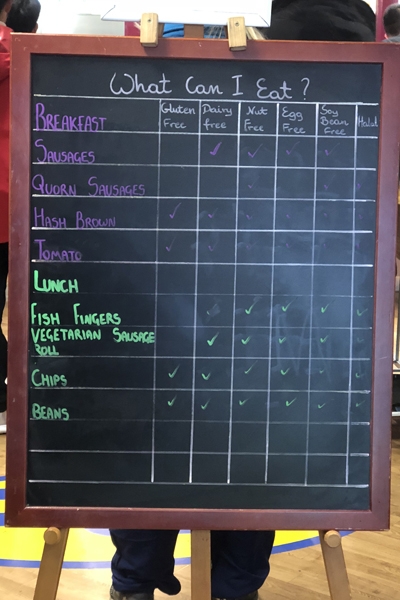 What Can I Eat?
BREAKFAST Gluten Free Dairy free Nut Free Egg Free Soy Bean Free Halal
SAUSAGES ✓ ✓ ✓ ✓
QUORN SAUSAGES
HASH BROWN ✓ ✓ ✓ ✓ ✓ ✓
TOMATO ✓ ✓
LUNCH
FISH FINGERS ✓ ✓ ✓ ✓ ✓
VEGETARIAN SAUSAGE
ROLL ✓ ✓ ✓ ✓ ✓
CHIPS ✓ ✓ ✓ ✓ ✓ ✓
BEANS ✓ ✓ ✓ ✓ ✓ ✓